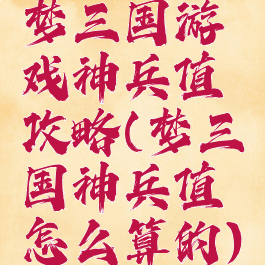 梦三国游
戏神兵值
攻略(梦三
国神兵值
怎么算的)